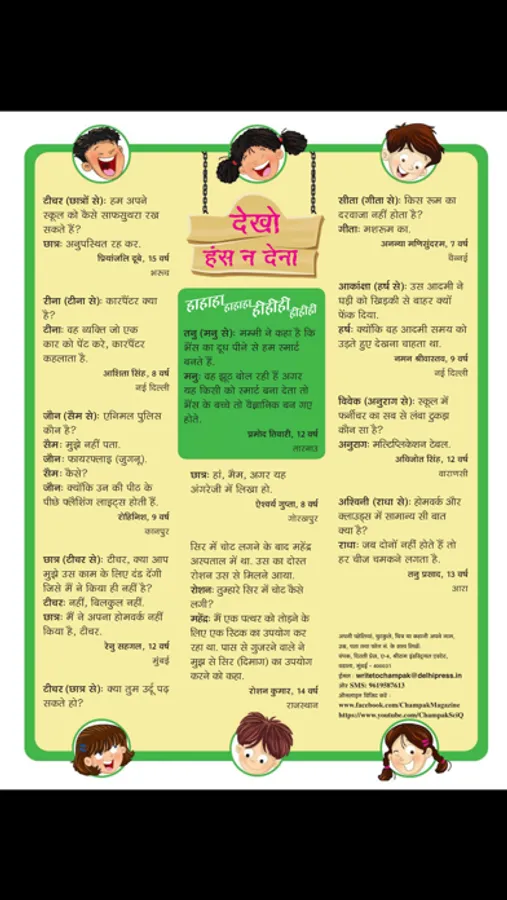 टीचर (छात्रों से): हम अपने
स्कूल को कैसे साफसुथरा रख
सकते हैं?
छात्र: अनुपस्थित रह कर.
प्रियांजलि दूबे, 15 वर्ष
भरूच
रीना (टीना से): कारपैंटर क्या
है?
टीना: वह व्यक्ति जो एक
कार को पेंट करे, कारपैंटर
कहलाता है.
आशिता सिंह, 8 वर्ष
नई दिल्ली
जौन (सैम से): एनिमल पुलिस
कौन है?
सैम: मुझे नहीं पता.
जौन: फायरफ्लाइ (जुगनू).
सैम: कैसे?
जौन: क्योंकि उन की पीठ के
पीछे फ्लैशिंग लाइट्स होती हैं.
रोहिनिश, 9 वर्ष
कानपुर
छात्र (टीचर से): टीचर, क्या आप
मुझे उस काम के लिए दंड देंगी
जिसे मैं ने किया ही नहीं है?
टीचर: नहीं, बिलकुल नहीं.
छात्र: मैं ने अपना होमवर्क नहीं
किया है, टीचर.
रेनु सहगल, 12 वर्ष
मुंबई
टीचर (छात्र से): क्या तुम उर्दू पढ़
सकते हो?
देखो
हंस न देना
हाहाहा हाहाहा हीहीही हीहीही
तनु (मनु से): मम्मी ने कहा है कि
भैंस का दूध पीने से हम स्मार्ट
बनते हैं.
मनु: वह झूठ बोल रही हैं अगर
यह किसी को स्मार्ट बना देता तो
भैंस के बच्चे तो वैज्ञानिक बन गए
होते.
प्रमोद तिवारी, 12 वर्ष
छात्र: हां, मैम, अगर यह
अंगरेजी में लिखा हो.
ऐश्वर्य गुप्ता, 8 वर्ष
गोरखपुर
सिर में चोट लगने के बाद महेंद्र
अस्पताल में था. उस का दोस्त
रोशन उस से मिलने आया.
रोशन: तुम्हारे सिर में चोट कैसे
लगी?
महेंद्र: मैं एक पत्थर को तोड़ने के
लिए एक स्टिक का उपयोग कर
रहा था. पास से गुजरने वाले ने
मुझ से सिर (दिमाग) का उपयोग
करने को कहा.
रोशन कुमार, 14 वर्ष
राजस्थान
सीता (गीता से): किस रूम का
दरवाजा नहीं होता है?
गीता: मशरूम का.
अनन्या मणिसुंदरम, 7 वर्ष
चेन्नई
आकांक्षा (हर्ष से): उस आदमी ने
घड़ी को खिड़की से बाहर क्यों
फेंक दिया.
हर्ष: क्योंकि वह आदमी समय को
उड़ते हुए देखना चाहता था.
नमन श्रीवास्तव, 9 वर्ष
नई दिल्ली
विवेक (अनुराग से): स्कूल में
फर्नीचर का सब से लंबा टुकड़ा
कौन सा है?
अनुराग: मल्टिप्लिकेशन टेबल.
अविनोत सिंह, 12 वर्ष
वाराणसी
अश्विनी (राधा से): होमवर्क और
क्लाउड्स में सामान्य सी बात
क्या है?
राधा: जब दोनों नहीं होते हैं तो
हर चीज चमकने लगता है.
तनु प्रसाद, 13 वर्ष
आरा
ईमेल : writetochampak@delhipress.in
और SMS: 9619587613
ऑनलाइन विजिट करें :
www.facebook.com/ChampakMagazine
https://www.youtube.com/ChampakSciQ